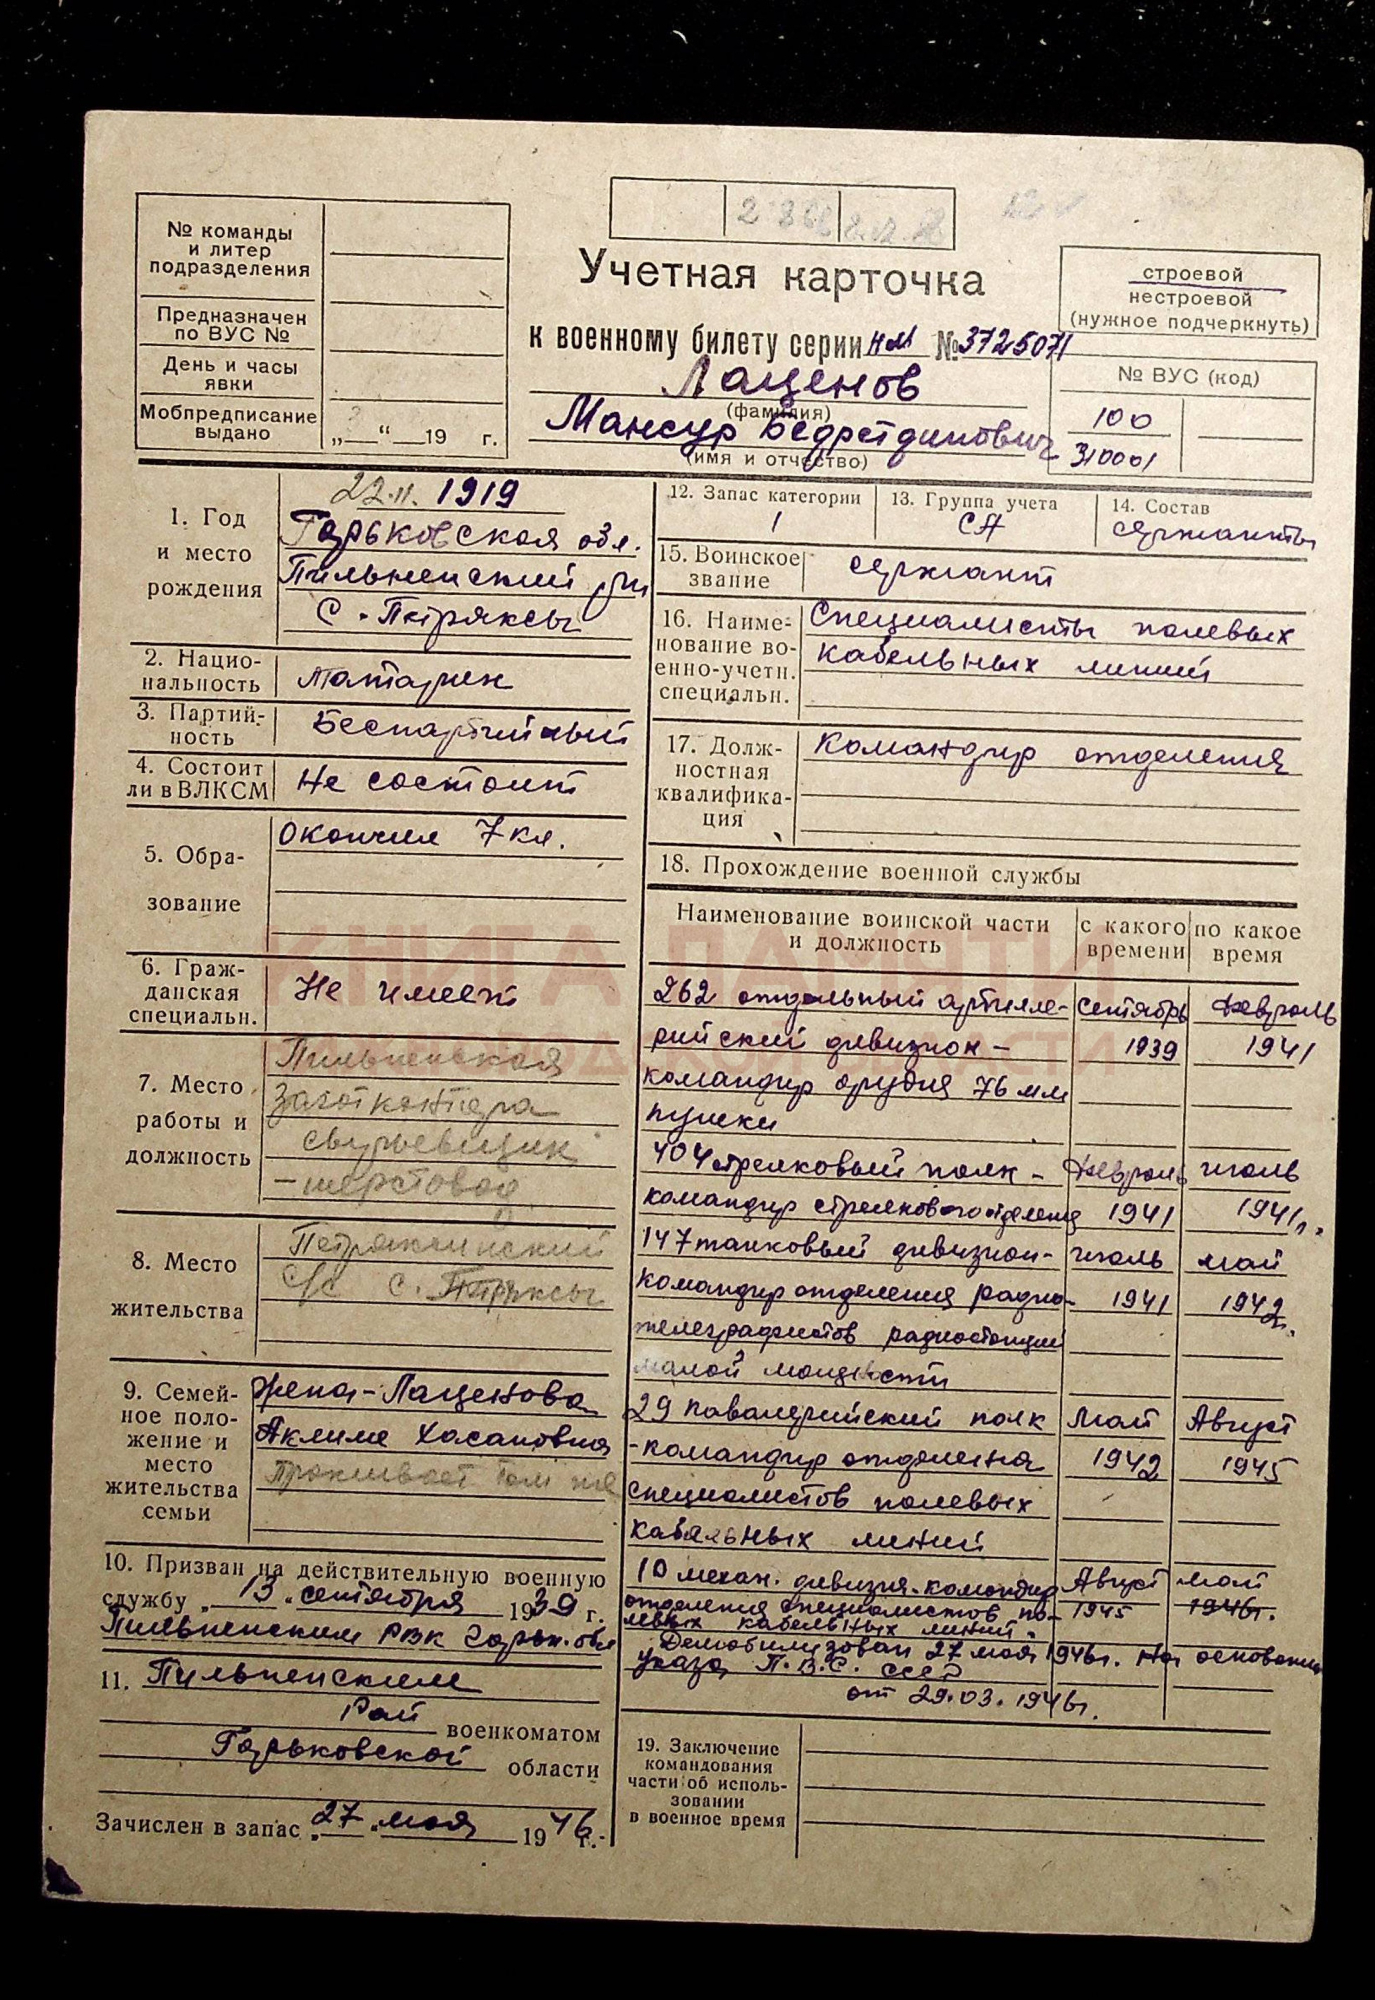 № команды
и литер
подразделения
Предназначен
по ВУС №
День и часы
явки
Мобпредписание
выдано
„ “ 19 г.
Учетная карточка
к военному билету серии НМ № 3725071
Лаценов
(фамилия)
Мансур Бедретдинович
(имя и отчество)
строевой
нестроевой
(нужное подчеркнуть)
№ ВУС (код)
100
310001
1. Год
и место
рождения
22.11.1919
Горьковская обл.
Пильненский р-н
с. Петряксы
2. Нацио-
нальность
Татарин
3. Партий-
ность
Беспартийный
4. Состоит
ли в ВЛКСМ
Не состоит
5. Обра-
зование
Окончил 7 кл.
6. Граж-
данская
специальн.
Не имеет
7. Место
работы и
должность
Пильненская
Заготконтора
сырьевщик
- шерстовод
8. Место
жительства
Петряксинский
с/с с. Петряксы
9. Семей-
ное поло-
жение и
место
жительства
семьи
жена - Лаценова
Аклиме Хасановна
проживает там же
10. Призван на действительную военную
службу „ 13 “ сентября 1939 г.
Пильненским РВК Горьк. обл
11. Пильненским
Рай
военкоматом
Горьковской области
Зачислен в запас „27“ мая 1946 г.
12. Запас категории
1
13. Группа учета
СА
14. Состав
сержанты
15. Воинское
звание
сержант
16. Наиме-
нование во-
енно-учетн.
специальн.
Специалисты полевых
кабельных линий
17. Долж-
ностная
квалифика-
ция
командир отделения
18. Прохождение военной службы
Наименование воинской части
и должность
с какого
времени
по какое
время
262 отдельный артилле- сентябрь февраль
рийский дивизион - 1939 1941
командир орудия 76 мм
пушки
404 стрелковый полк - февраль июль
командир стрелкового отделения 1941 1941 г.
147 танковый дивизион - июль май
командир отделения радио- 1941 1942 г.
телеграфистов радиостанции
малой мощности
29 кавалерийский полк май Август
- командир отделения 1942 1945
специалистов полевых
кабельных линий
10 механ. дивизия - командир Август май
отделения специалистов по- 1945 1946 г.
левых кабельных линий.
Демобилизован 27 мая 1946 г. На основании
указа П.В.С. СССР
от 29.03.1946 г.
19. Заключение
командования
части об исполь-
зовании
в военное время
КНИГА ПАМЯТИ
НИЖЕГОРОДСКОЙ ОБЛАСТИ